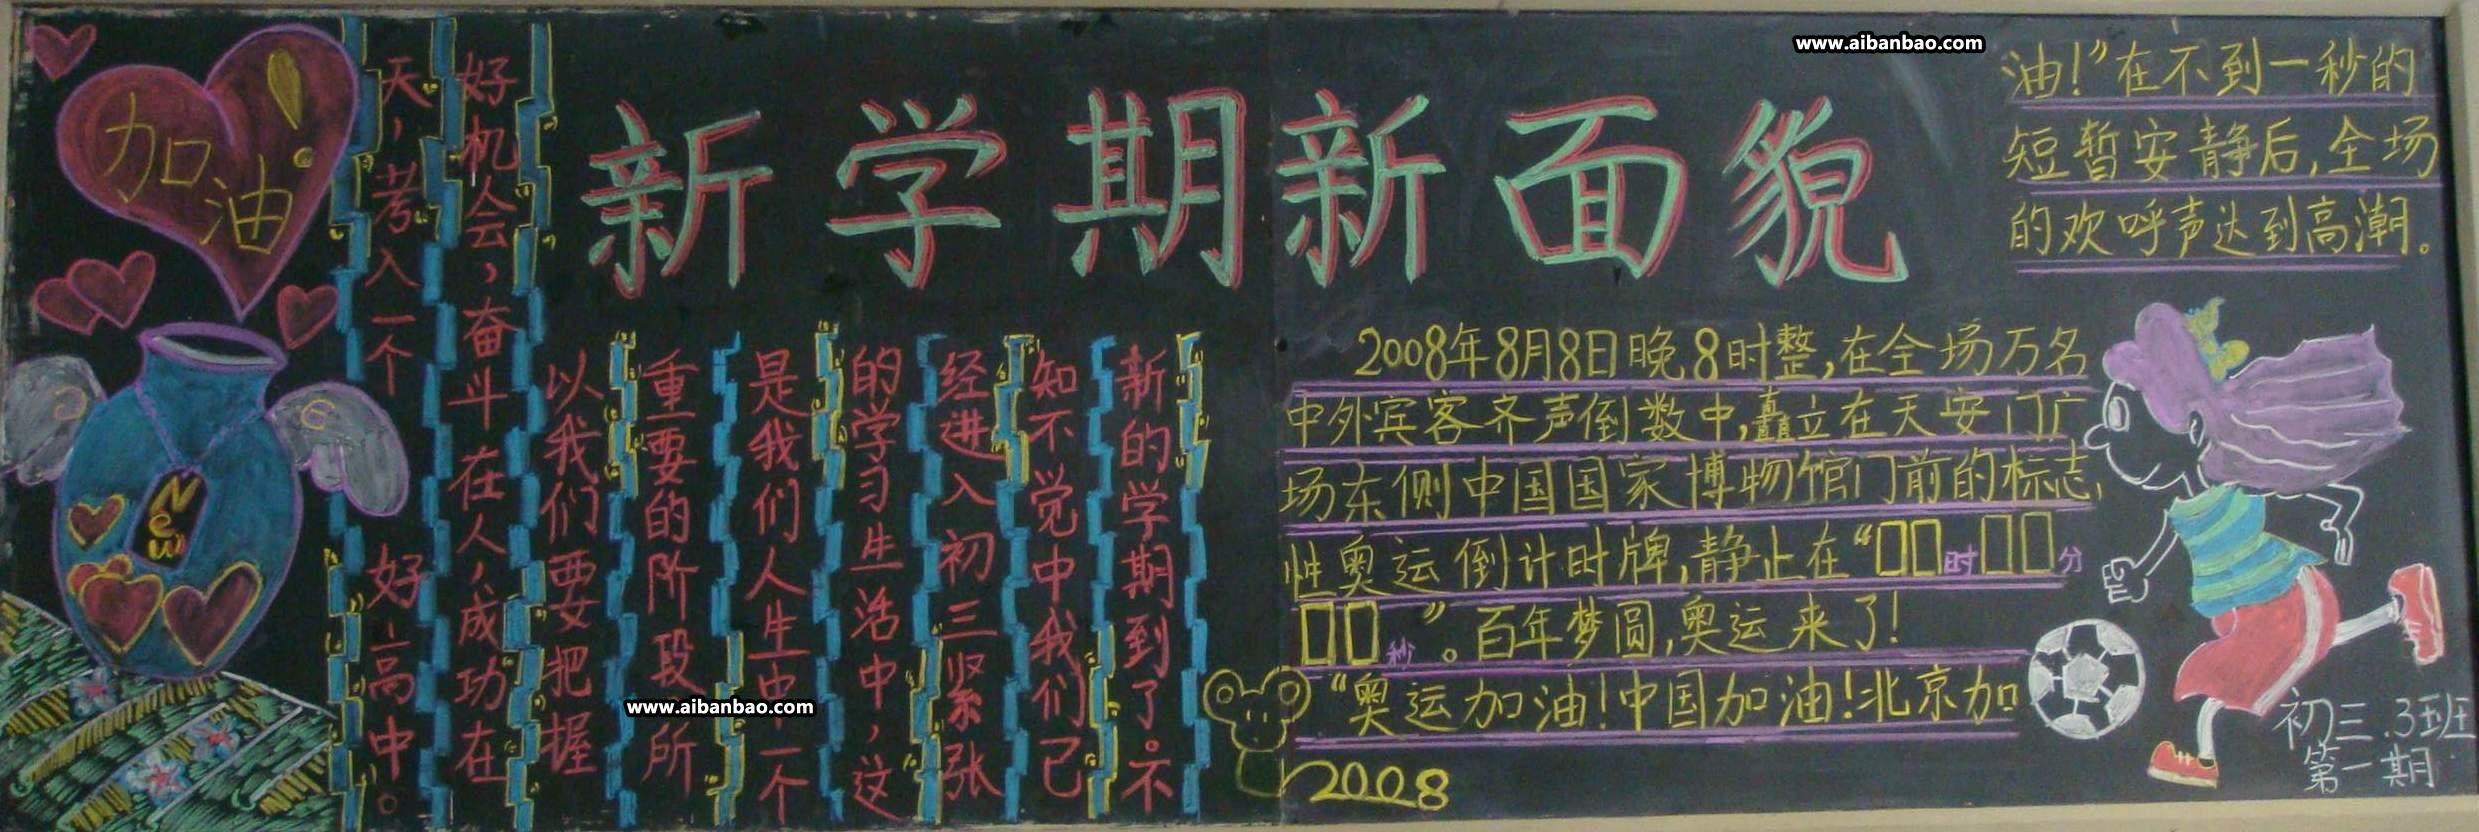 新学期新面貌
加油!
New
新的学期到了。不
知不觉中我们已
经进入初三紧张
的学习生活中,这
是我们人生中一个
重要的阶段,所
以我们要把握
好机会,奋斗在人,成功在
天,考入一个好高中。
2008年8月8日晚8时整,在全场万名
中外宾客齐声倒数中,矗立在天安门广
场东侧中国国家博物馆门前的标志
性奥运倒计时牌,静止在“00时00分
00秒”。百年梦圆,奥运来了!
“奥运加油!中国加油!北京加
油!”在不到一秒的
短暂安静后,全场
的欢呼声达到高潮。
2008
初三.3班
第一期
www.aibanbao.com
www.aibanbao.com